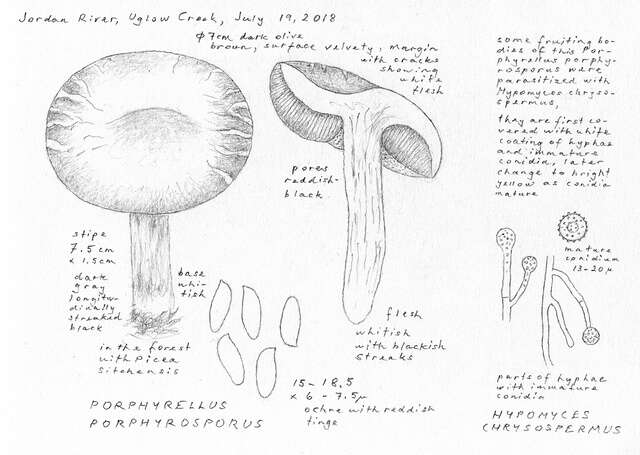 Jordan River, Uglow Creek, July 19, 2018
φ 7cm dark olive
brown, surface velvety, margin
with cracks
showing
white
flesh
pores
reddish-
black
stipe
7.5 cm
x 1.5cm
dark
gray
longitu-
dinally
streaked
black
base
whi-
tish
in the forest
with Picea
sitchensis
flesh
whitish
with blackish
streaks
15 - 18,5
x 6 - 7.5µ
ochre with reddish
tinge
PORPHYRELLUS
PORPHYROSPORUS
some fruiting bo-
dies of this Por-
phyrellus porphy-
rosporus were
parasitized with
Hypomyces chryso-
spermus,
they are first co-
vered with white
coating of hyphae
and immature
conidia, later
change to bright
yellow as conidia
mature
mature
conidium
13-20µ
parts of hyphae
with immature
conidia
HYPOMYCES
CHRYSOSPERMUS